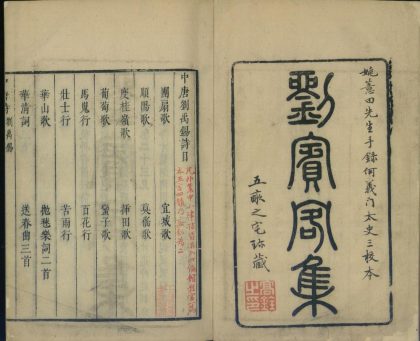 姚薏田先生手錄何義門太史三校本
劉賓客集
五畝之宅珍藏
中唐劉禹錫詩目
團扇歌
宜城歌
順陽歌
莫傜歌
度桂嶺歌
插田歌
葡萄歌
蠻子歌
馬嵬行
百花行
壯士行
苦雨行
華山歌
拋毬樂詞二首
華清詞
送春曲三首